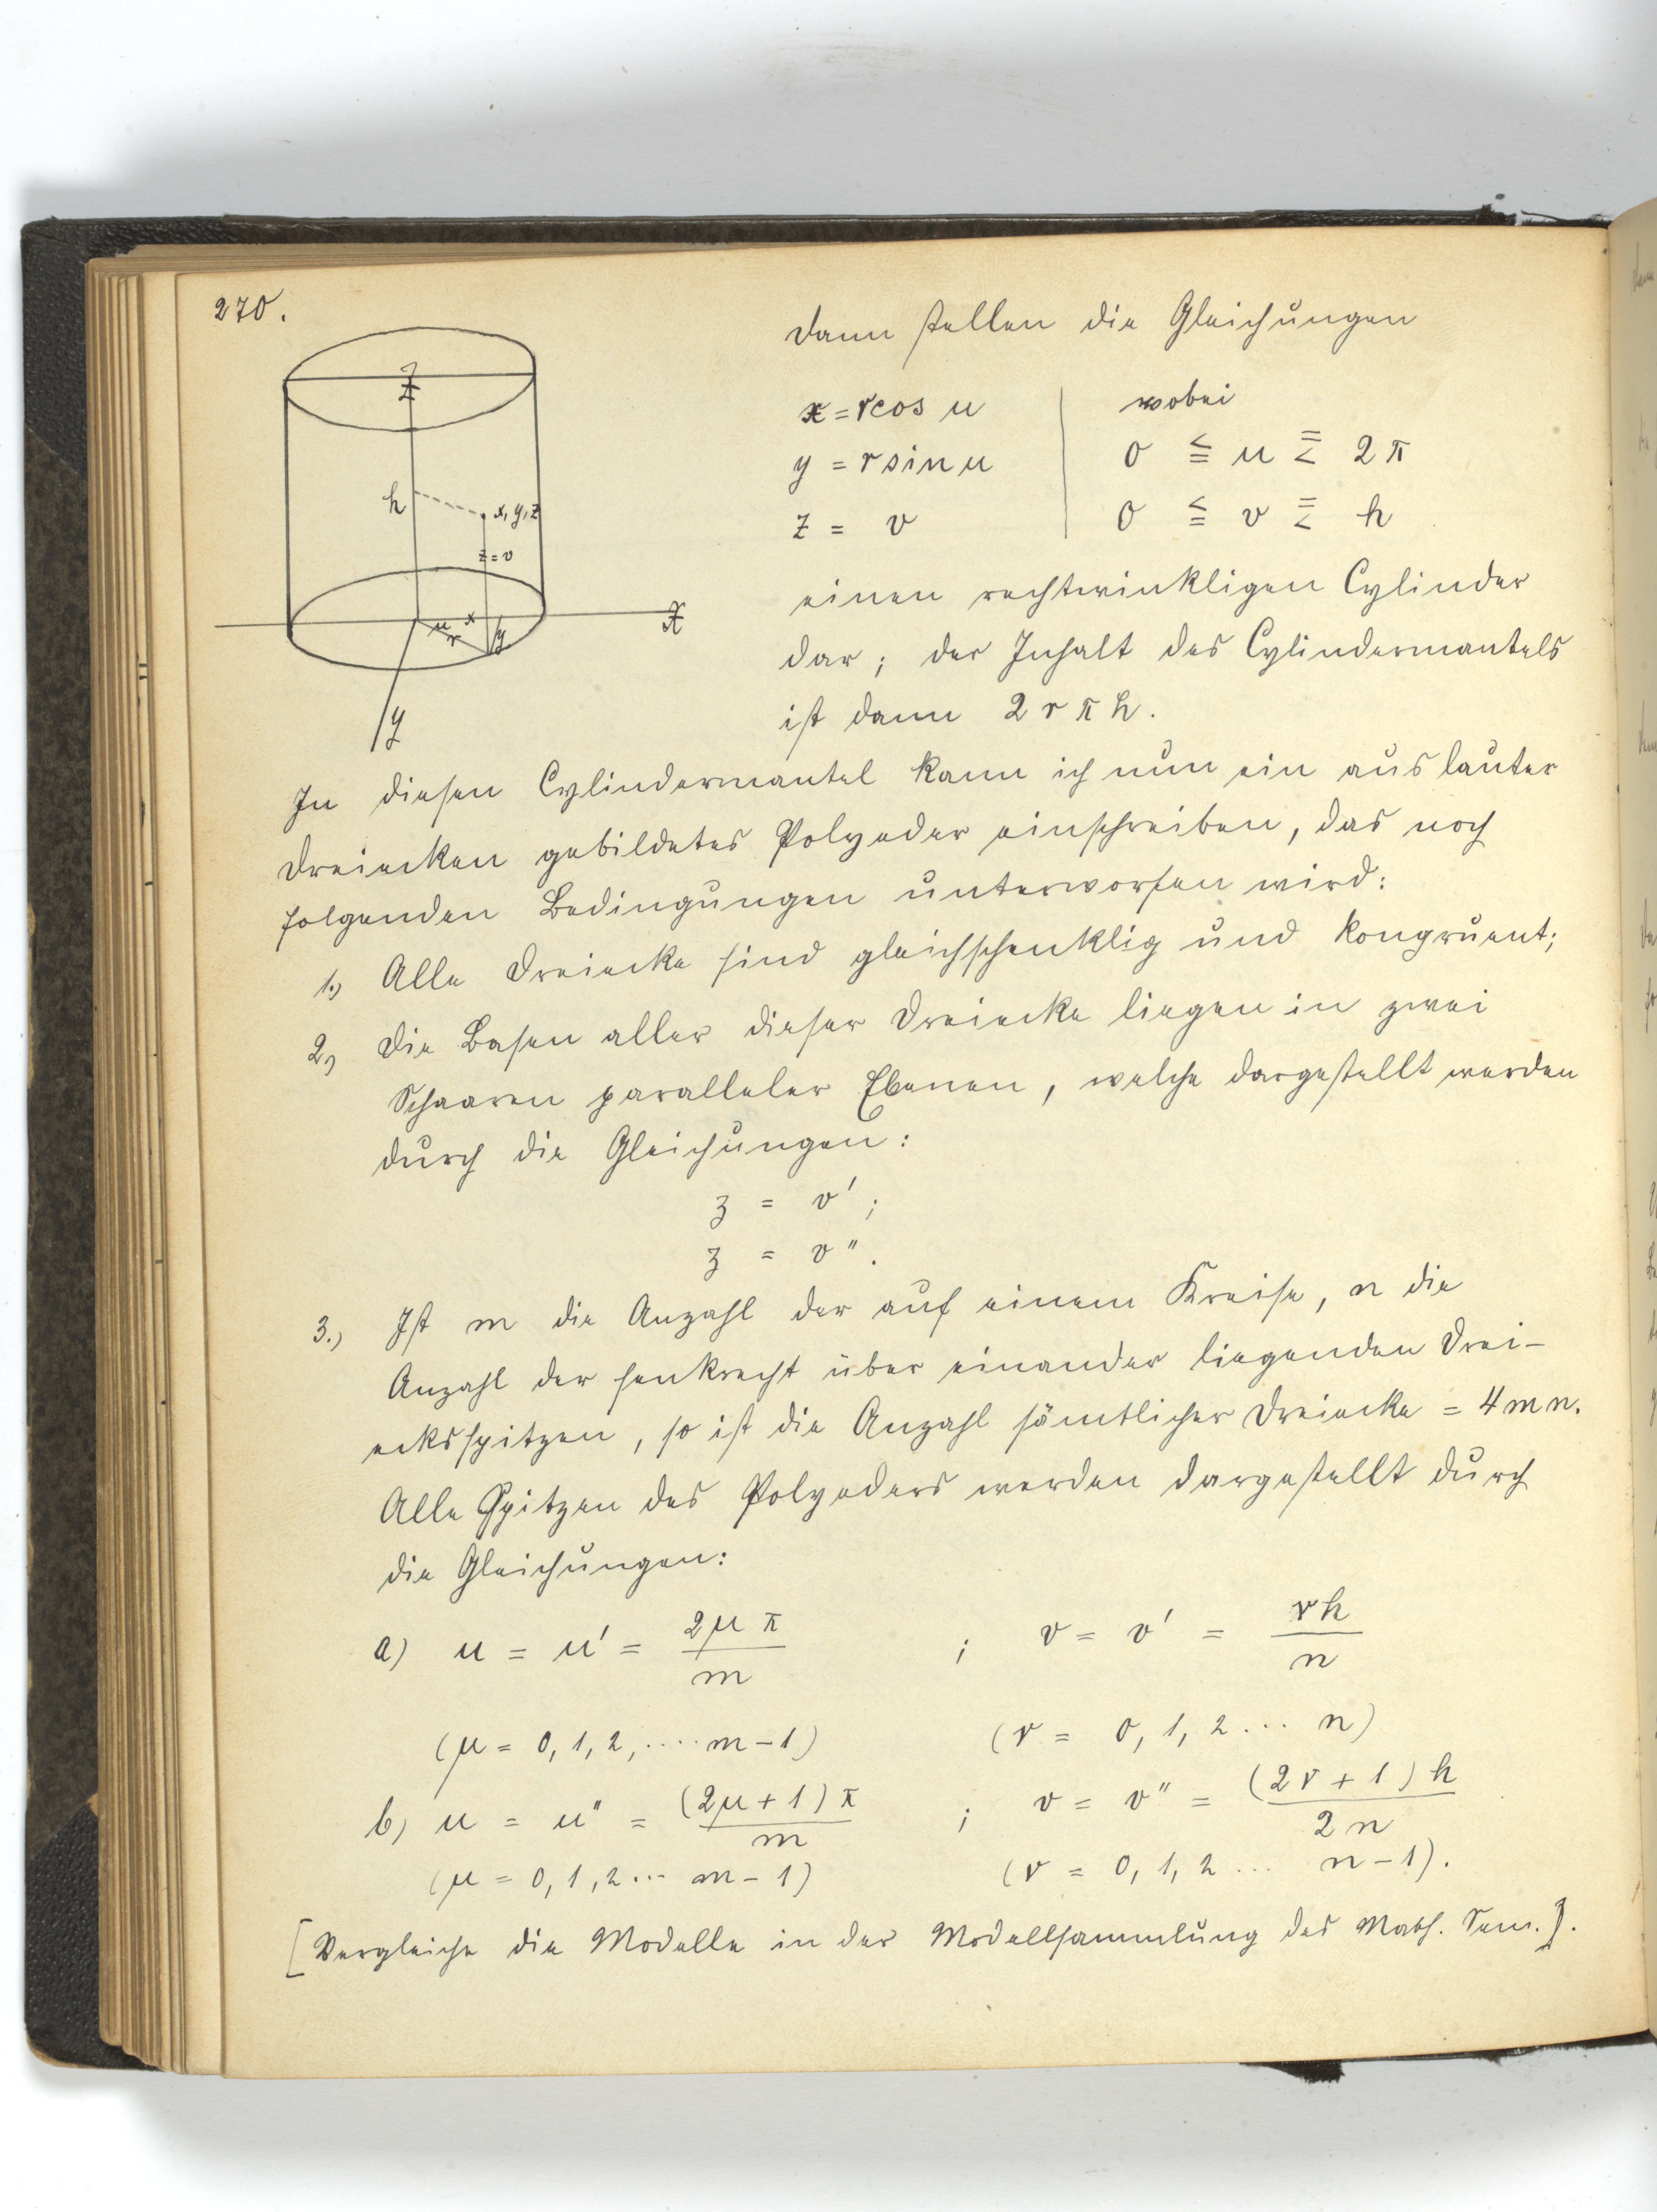 270.
Dann stellen die Gleichungen
x = r cos u | wobei
y = r sin u | 0 ≦ u ≦ 2π
z = v | 0 ≦ v ≦ h
Z
h
x, y, z
z = v
u x
r y
X
y
einen rechtwinkligen Cylinder
dar; der Inhalt des Cylindermantels
ist dann 2 r π h.
In diesen Cylindermantel kann ich nun ein aus lauter
Dreiecken gebildetes Polyeder einschreiben, das noch
folgenden Bedingungen unterworfen wird:
1.) Alle Dreiecke sind gleichschenklig und kongruent;
2.) Die Basen aller dieser Dreiecke liegen in zwei
Schaaren paralleler Ebenen, welche dargestellt werden
durch die Gleichungen:
z = v';
z = v".
3.) Ist m die Anzahl der auf einem Kreise, n die
Anzahl der senkrecht über einander liegenden Drei-
ecksspitzen, so ist die Anzahl sämtlicher Dreiecke = 4 m n.
Alle Spitzen des Polyeders werden dargestellt durch
die Gleichungen:
a) u = u' = 2μπ/m ; v = v' = νh/n
(μ = 0, 1, 2, .... m-1) (ν = 0, 1, 2 ... n)
b) u = u" = (2μ+1)π/m ; v = v" = (2ν+1)h/2n
(μ = 0, 1, 2 ... m-1) (ν = 0, 1, 2 ... n-1).
[Vergleiche die Modelle in der Modellsammlung des Math. Sem.].